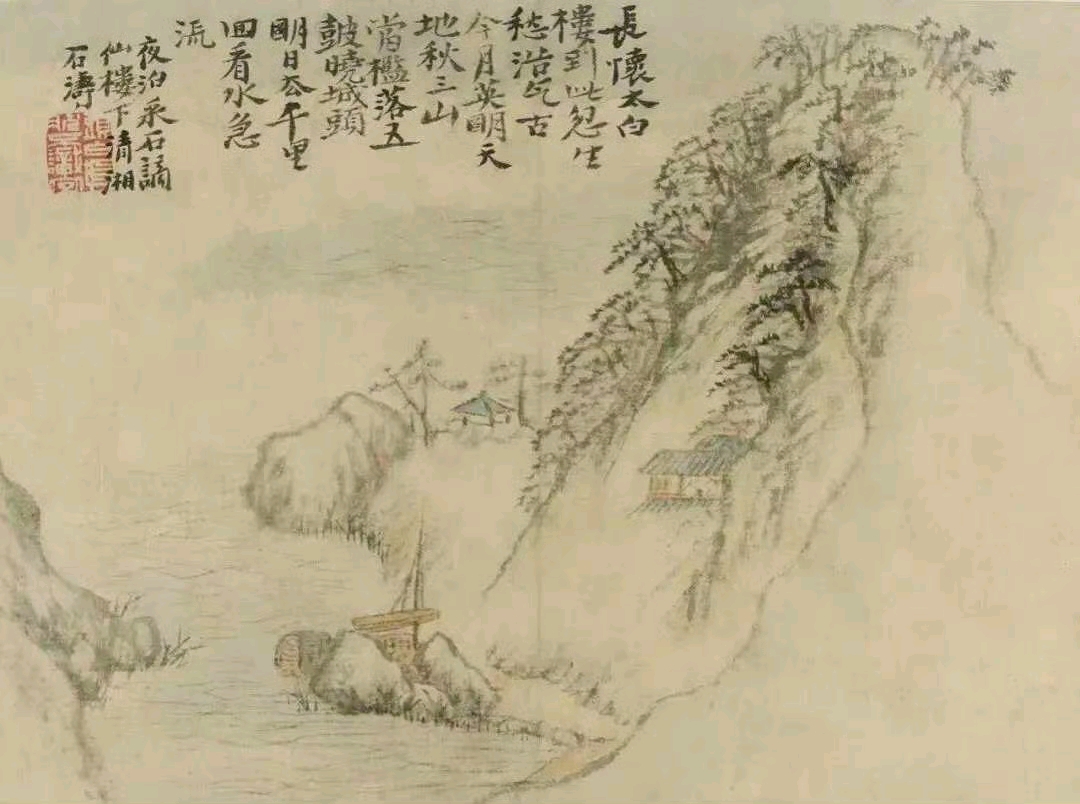 長懷太白
樓到此忽生
愁浩气古
今月英明天
地秋三山
當檻落五
皷曉城頭
明日去千里
回看水急
流
夜泊采石謫
仙樓下清湘
石濤